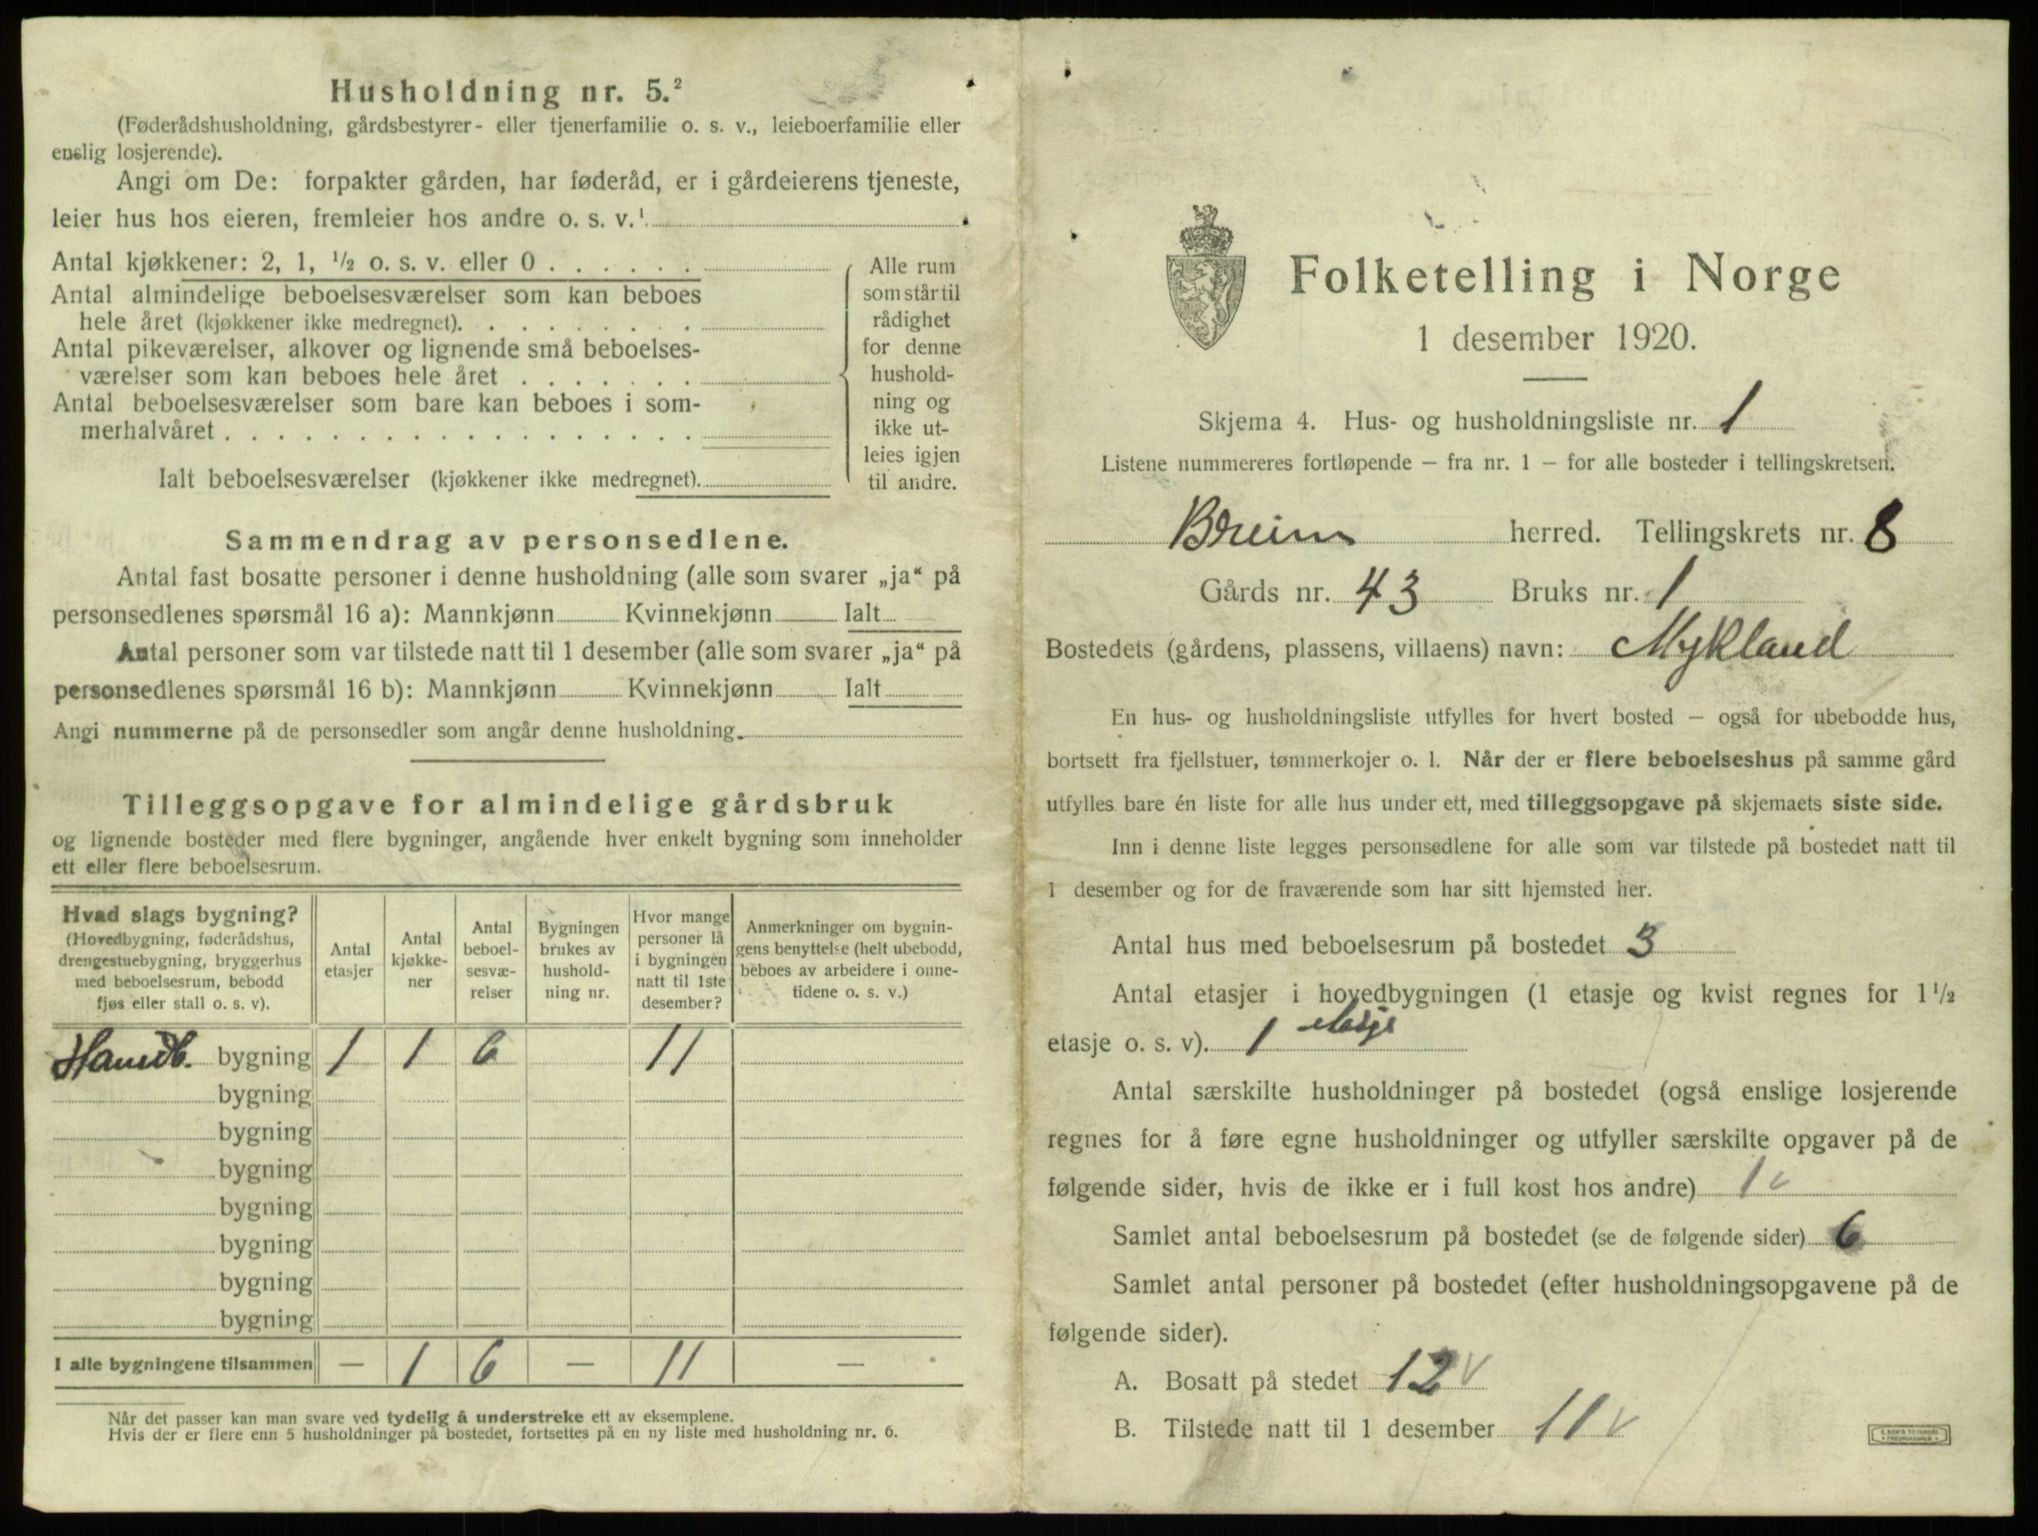 Husholdning nr. 5.²
(Føderådshusholdning, gårdsbestyrer- eller tjenerfamilie o. s. v., leieboerfamilie eller
enslig losjerende).
Angi om De: forpakter gården, har føderåd, er i gårdeierens tjeneste,
leier hus hos eieren, fremleier hos andre o. s. v.¹
Antal kjøkkener: 2, 1, ½ o. s. v. eller 0 . . . . . .
Antal almindelige beboelsesværelser som kan beboes
hele året (kjøkkener ikke medregnet). . . . . . . . .
Antal pikeværelser, alkover og lignende små beboelses-
værelser som kan beboes hele året . . . . . . .
Antal beboelsesværelser som bare kan beboes i som-
merhalvåret . . . . . . . . . . . . . . . . . .
Ialt beboelsesværelser (kjøkkener ikke medregnet).
Alle rum
som står til
rådighet
for denne
hushold-
ning og
ikke ut-
leies igjen
til andre.
Sammendrag av personsedlene.
Antal fast bosatte personer i denne husholdning (alle som svarer „ja“ på
personsedlenes spørsmål 16 a): Mannkjønn Kvinnekjønn Ialt
Antal personer som var tilstede natt til 1 desember (alle som svarer „ja“ på
personsedlenes spørsmål 16 b): Mannkjønn Kvinnekjønn Ialt
Angi nummerne på de personsedler som angår denne husholdning.
Tilleggsopgave for almindelige gårdsbruk
og lignende bosteder med flere bygninger, angående hver enkelt bygning som inneholder
ett eller flere beboelsesrum.
Hvad slags bygning?
(Hovedbygning, føderådshus,
drengestuebygning, bryggerhus
med beboelsesrum, bebodd
fjøs eller stall o. s. v).
Antal
etasjer
Antal
kjøkke-
ner
Antal
beboel-
sesvæ-
relser
Bygningen
brukes av
hushold-
ning nr.
Hvor mange
personer lå
i bygningen
natt til 1ste
desember?
Anmerkninger om bygnin-
gens benyttelse (helt ubebodd,
beboes av arbeidere i onne-
tidene o. s. v.)
bygning 1 1 6 11
bygning
bygning
bygning
bygning
bygning
bygning
bygning
I alle bygningene tilsammen — 1 6 — 11 —
Når det passer kan man svare ved tydelig å understreke ett av eksemplene.
Hvis der er flere enn 5 husholdninger på bostedet, fortsettes på en ny liste med husholdning nr. 6.
Folketelling i Norge
1 desember 1920.
Skjema 4. Hus- og husholdningsliste nr. 1
Listene nummereres fortløpende – fra nr. 1 – for alle bosteder i tellingskretsen.
Breim herred. Tellingskrets nr. 8
Gårds nr. 43 Bruks nr. 1
Bostedets (gårdens, plassens, villaens) navn: Mykland
En hus- og husholdningsliste utfylles for hvert bosted – også for ubebodde hus,
bortsett fra fjellstuer, tømmerkojer o. l. Når der er flere beboelseshus på samme gård
utfylles bare én liste for alle hus under ett, med tilleggsopgave på skjemaets siste side.
Inn i denne liste legges personsedlene for alle som var tilstede på bostedet natt til
1 desember og for de fraværende som har sitt hjemsted her.
Antal hus med beboelsesrum på bostedet 3
Antal etasjer i hovedbygningen (1 etasje og kvist regnes for 1½
etasje o. s. v). 1 etasje
Antal særskilte husholdninger på bostedet (også enslige losjerende
regnes for å føre egne husholdninger og utfyller særskilte opgaver på de
følgende sider, hvis de ikke er i full kost hos andre) 1 v
Samlet antal beboelsesrum på bostedet (se de følgende sider) 6
Samlet antal personer på bostedet (efter husholdningsopgavene på de
følgende sider).
A. Bosatt på stedet 12 v
B. Tilstede natt til 1 desember 11 v